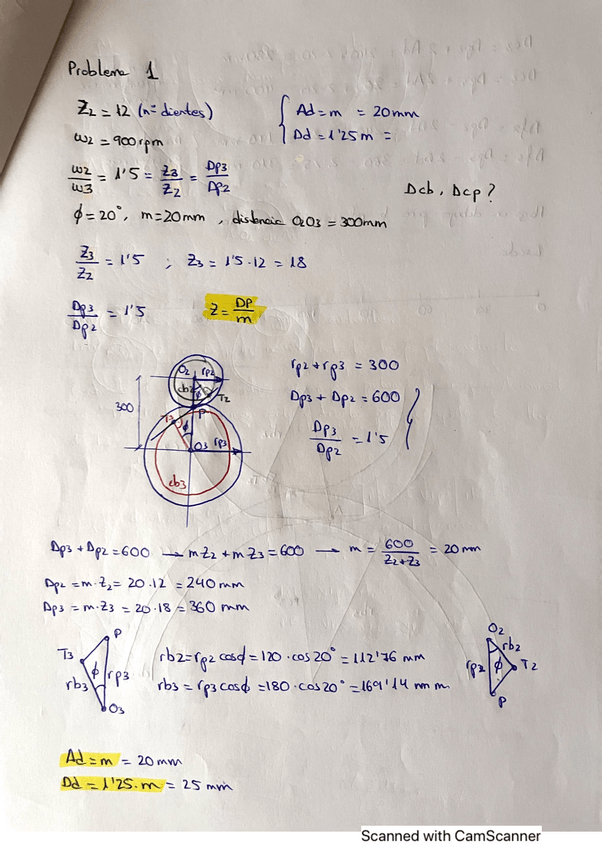 Problema 1
Z2 = 12 (nº dientes)
Ad = m = 20 mm
ω2 = 900 rpm
Dd = 1'25 m =
ω2/ω3 = 1'5 = Z3/Z2 = Dp3/Dp2
Dcb, Dcp?
ϕ = 20°, m = 20 mm, distancia O2O3 = 300 mm
Z3/Z2 = 1'5 ; Z3 = 1'5 · 12 = 18
Dp3/Dp2 = 1'5
Z = DP/m
O2 rp2
cb2 ϕ T2
P
300
T3 ϕ
O3 rp3
cb3
rp2 + rp3 = 300
Dp3 + Dp2 = 600
Dp3/Dp2 = 1'5
Dp3 + Dp2 = 600 → mZ2 + mZ3 = 600 → m = 600/Z2+Z3 = 20 mm
Dp2 = m·Z2 = 20·12 = 240 mm
Dp3 = m·Z3 = 20·18 = 360 mm
P
T3
ϕ rp3
rb3
O3
rb2 = rp2 cosϕ = 120 · cos20° = 112'76 mm
rb3 = rp3 cosϕ = 180 · cos20° = 169'14 mm
O2
rb2
rp2 ϕ T2
P
Ad = m = 20 mm
Dd = 1'25·m = 25 mm
Scanned with CamScanner